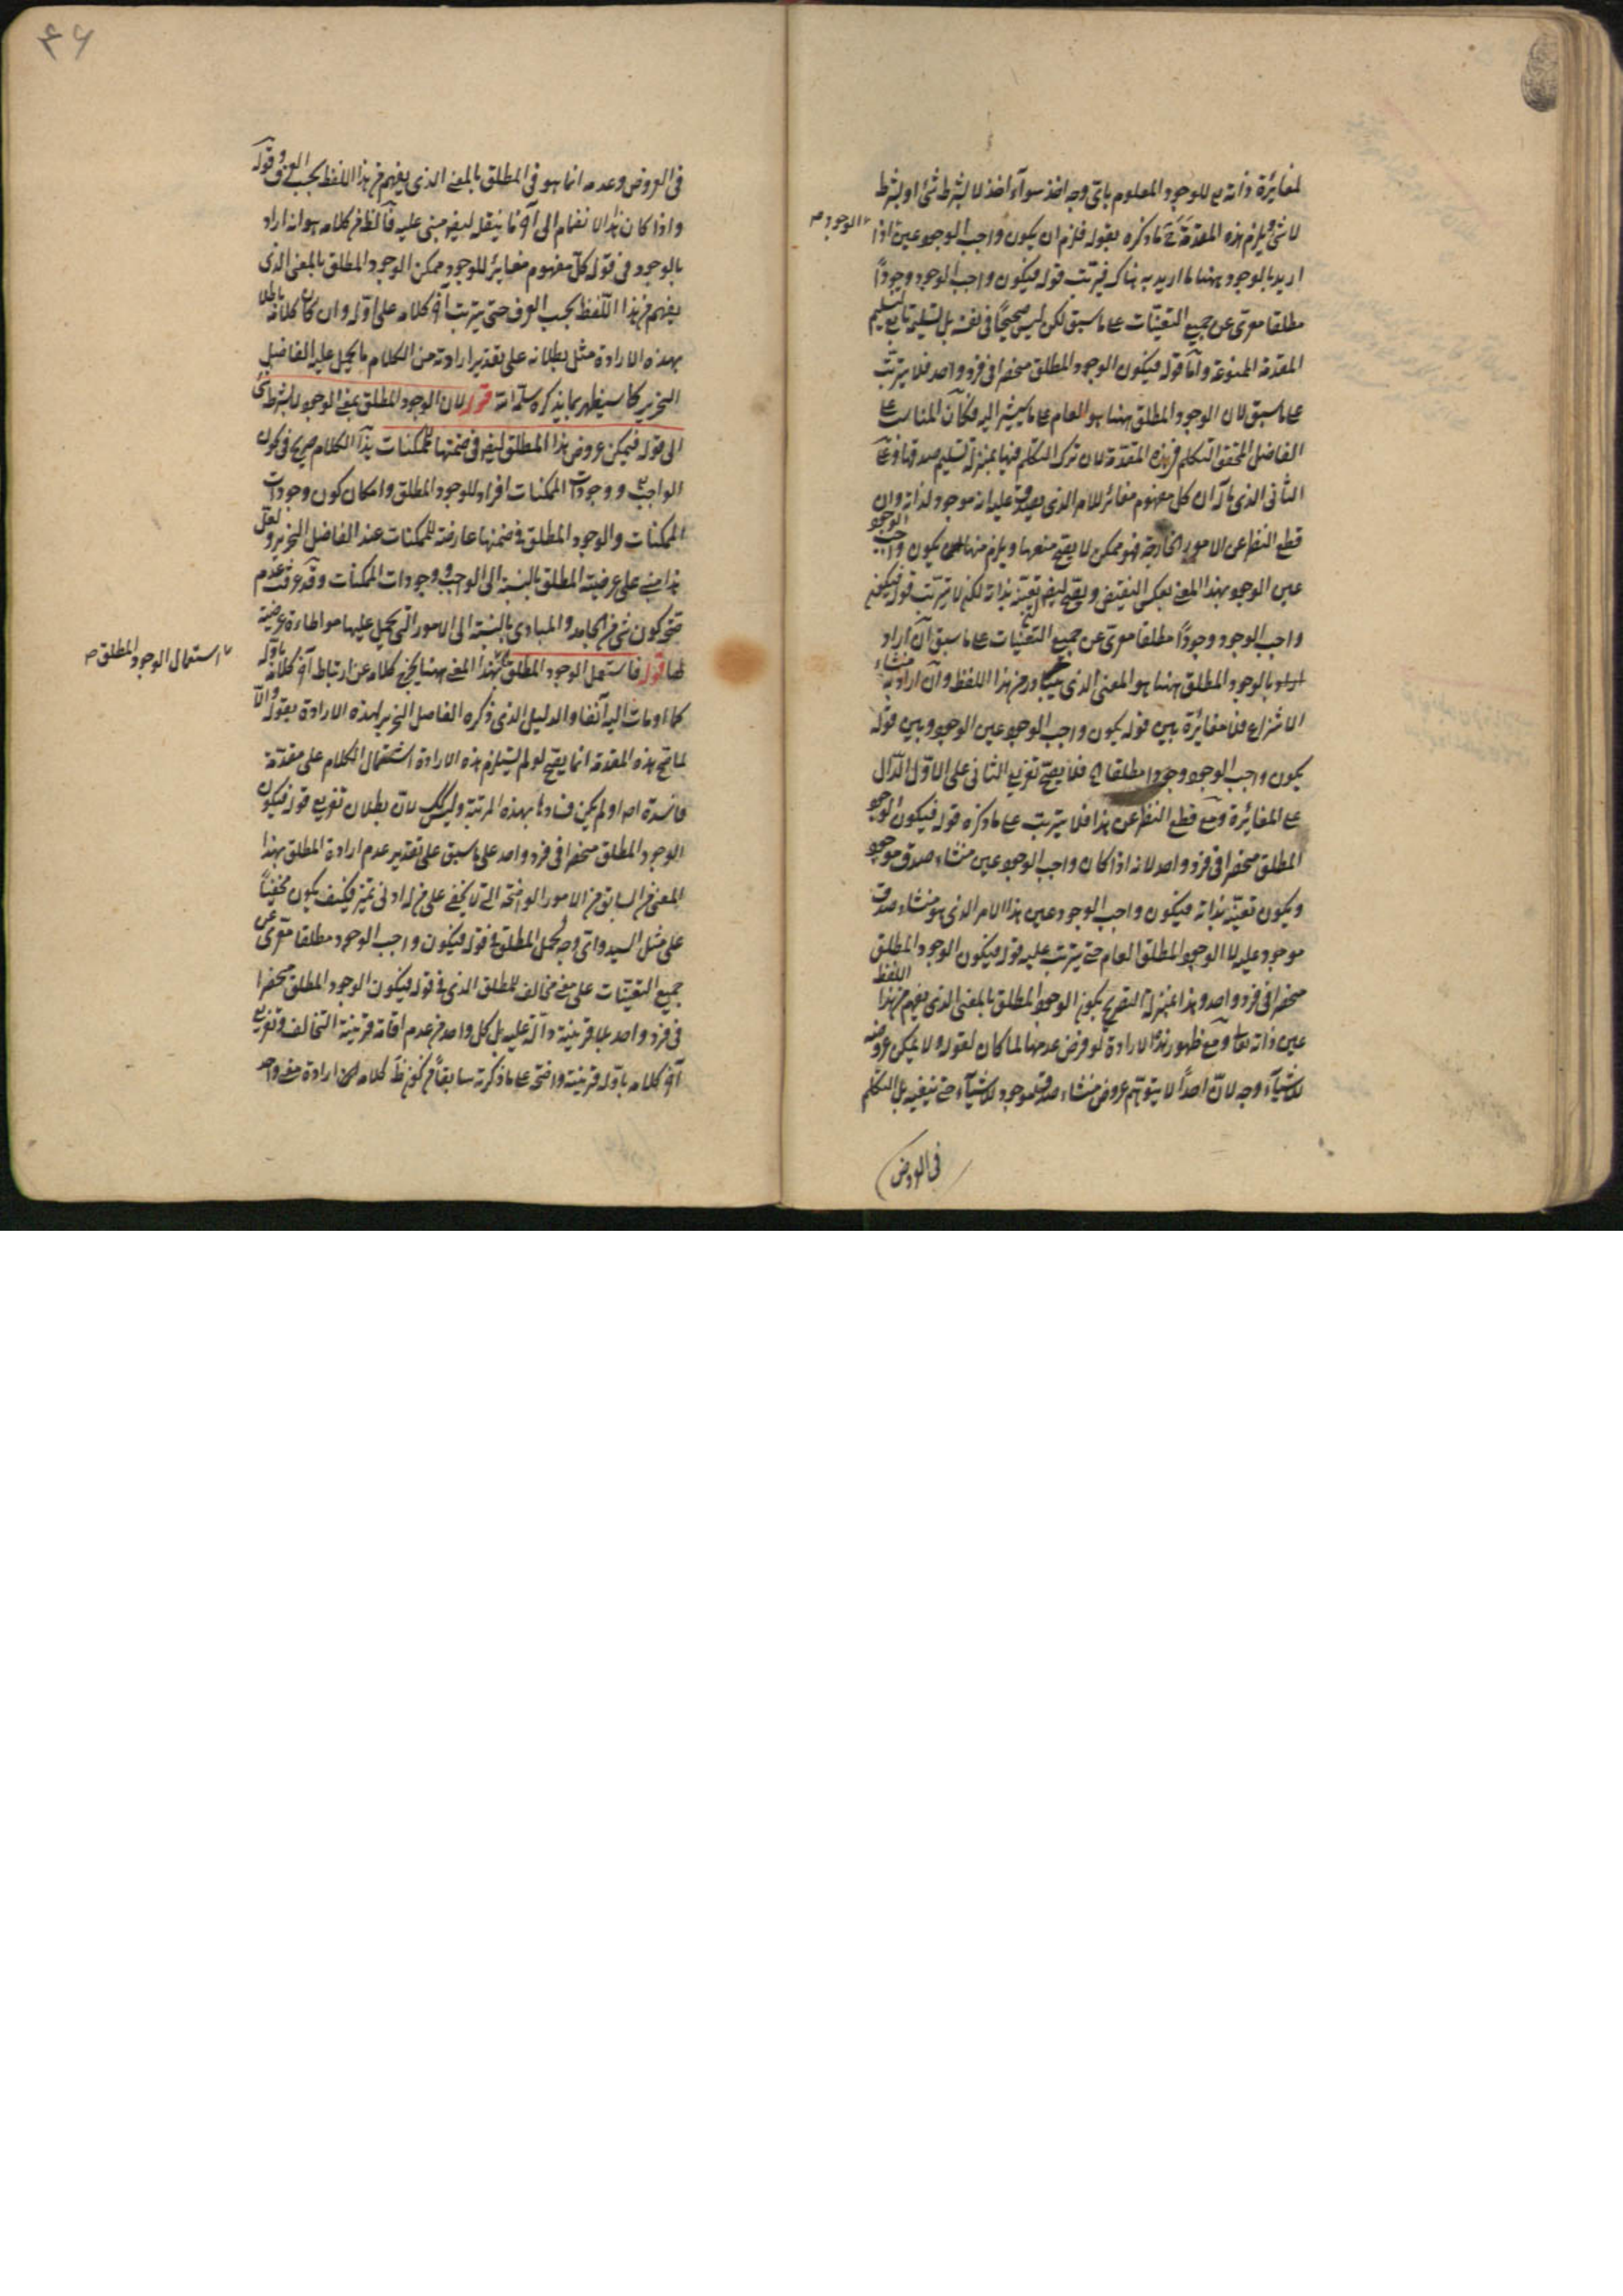 لمغايرة ذاته مع للوجود المعلوم باى وجه اخذ سوآء اخذ لا بشرط شئ او بشرط
لا شئ ويلزم هذه المقدمة ما ذكره بقوله فلزم ان يكون واجب الوجود عين اذا
الوجود ص
اريد بالوجود ههنا ما اريد به هناك فيترتب قوله فيكون واجب الوجود وجوداً
مطلقا معرى عن جميع التعينات على ما سبق لكن ليس صحيحًا فى نفسه بل تسليمه تابع لتسليم
المقدمة الممنوعة وأما قوله فيكون الوجود المطلق منحصرا فى فرد واحد فلا يترتب
على ما سبق لان الوجود المطلق ههنا هو العام على ما يشير اليه فكان المناسب على
الفاضل المحقق التكلم فى هذه المقدمة لان ترك التكلم فيها بمنزلة تسليم صدقها وعلى
الثانى الذى مآله ان كل مفهوم مغائر للامر الذى يصدق عليه انه موجود لذاته وان
قطع النظر عن الامور الخارجة فهو ممكن لا يصح منعها ويلزم منها ان يكون واجب الوجود
عين الوجود بهذا المعنى بعكس النقيض ويصح ايضا تعينه بذاته لكنه لا يترتب قوله فيكون
واجب الوجود وجودًا مطلقا معرى عن جميع التعينات على ما سبق ان اراد
بالوجود المطلق ههنا هو المعنى الذى يتبادر من هذا اللفظ وان اراد به منشاء
الانتزاع فلا مغايرة بين قوله يكون واجب الوجود عين الوجود وبين قوله
يكون واجب الوجود وجودا مطلقا فلا يصح تفريع الثانى على الاول الدال
على المغائرة ومع قطع النظر عن هذا فلا يترتب على ما ذكره قوله فيكون الوجود
المطلق منحصرا فى فرد واحد لانه اذا كان واجب الوجود عين منشاء صدق موجود
ويكون تعينه بذاته فيكون واجب الوجود عين هذا الامر الذى هو منشاء صدق
موجود عليه لا الوجود المطلق العام حتى يترتب عليه قوله فيكون الوجود المطلق
منحصرا فى فرد واحد وهذا بمنزلة التصريح بكون الوجود المطلق بالمعنى الذى يفهم من هذا اللفظ
عين ذاته تعالى ومع ظهور هذه الارادة لو فرض عدمها لما كان لقوله ولا يمكن عروضه
للاشيآء وجه لان احداً لا يتوهم عروض منشاء صدق موجود للاشيآء حتى ينفيه بل التكلم
فى العروض
فى العروض وعدمه انما هو فى المطلق بالمعنى الذى يفهم من هذا اللفظ بحسب العرف وقوله
واذا كان هذا الانضمام الى آخر ما ينقله ايضا مبنى عليه فالظ من كلامه هو انه اراد
بالوجود فى قوله كل مفهوم مغائر للوجود ممكن الوجود المطلق بالمعنى الذى
يفهم من هذا اللفظ بحسب العرف حتى يترتب آخر كلامه على اوله وان كان كلامه باطلا
بهذه الارادة مثل بطلانه على تقدير ارادته من الكلام ما يحمل عليه الفاضل
النحرير كما سيظهر بما يذكره سلمه الله قوله لان الوجود المطلق بمعنى الوجود لا بشرط شئ
الى قوله فيمكن عروض هذا المطلق ايضا فى ضمنها للممكنات هذا الكلام صريح فى كون
الواجب ووجودات الممكنات افراد للوجود المطلق وامكان كون وجودات
الممكنات والوجود المطلق فى ضمنها عارضة للممكنات عند الفاضل النحرير ولعل
هذا مبنى على عرضية المطلق بالنسبة الى الواجب ووجودات الممكنات وقد عرفت عدم
صحة كون شئ من الجامد والمبادى بالنسبة الى الامور التى يحمل عليها مواطاءة عرضية
لها قوله فاستعمل الوجود المطلق بهذا المعنى ههنا يخرج كلامه عن ارتباط آخر كلامه باوله
استعمال الوجود المطلق ص
كما اومات اليه آنفا والدليل الذى ذكره الفاضل النحرير لهذه الارادة بقوله والا
لما تصح هذه المقدمة انما يصح لو لم يستلزم هذه الارادة اشتمال الكلام على مقدمة
فاسدة او لم يكن فسادها بهذه المرتبة وليس كك لان بطلان تفريع قوله فيكون
الوجود المطلق منحصرا فى فرد واحد على ما سبق على تقدير عدم ارادة المطلق بهذا
المعنى فى السابق من الامور الواضحة التى لا يخفى على من له ادنى تميز فكيف يكون مخفيًا
على مثل السيد واى وجه لحمل المطلق فى قوله فيكون واجب الوجود مطلقا معرى عن
جميع التعينات على معنى مخالف للمطلق الذى فى قوله فيكون الوجود المطلق منحصرا
فى فرد واحد بلا قرينة دآلة عليه بل كل واحد من عدم اقامة قرينة التخالف وتفريع
آخر كلامه باوله قرينة واضحة على ما ذكرته سابقاً من كون ظ كلامه ارادة معنى واحد